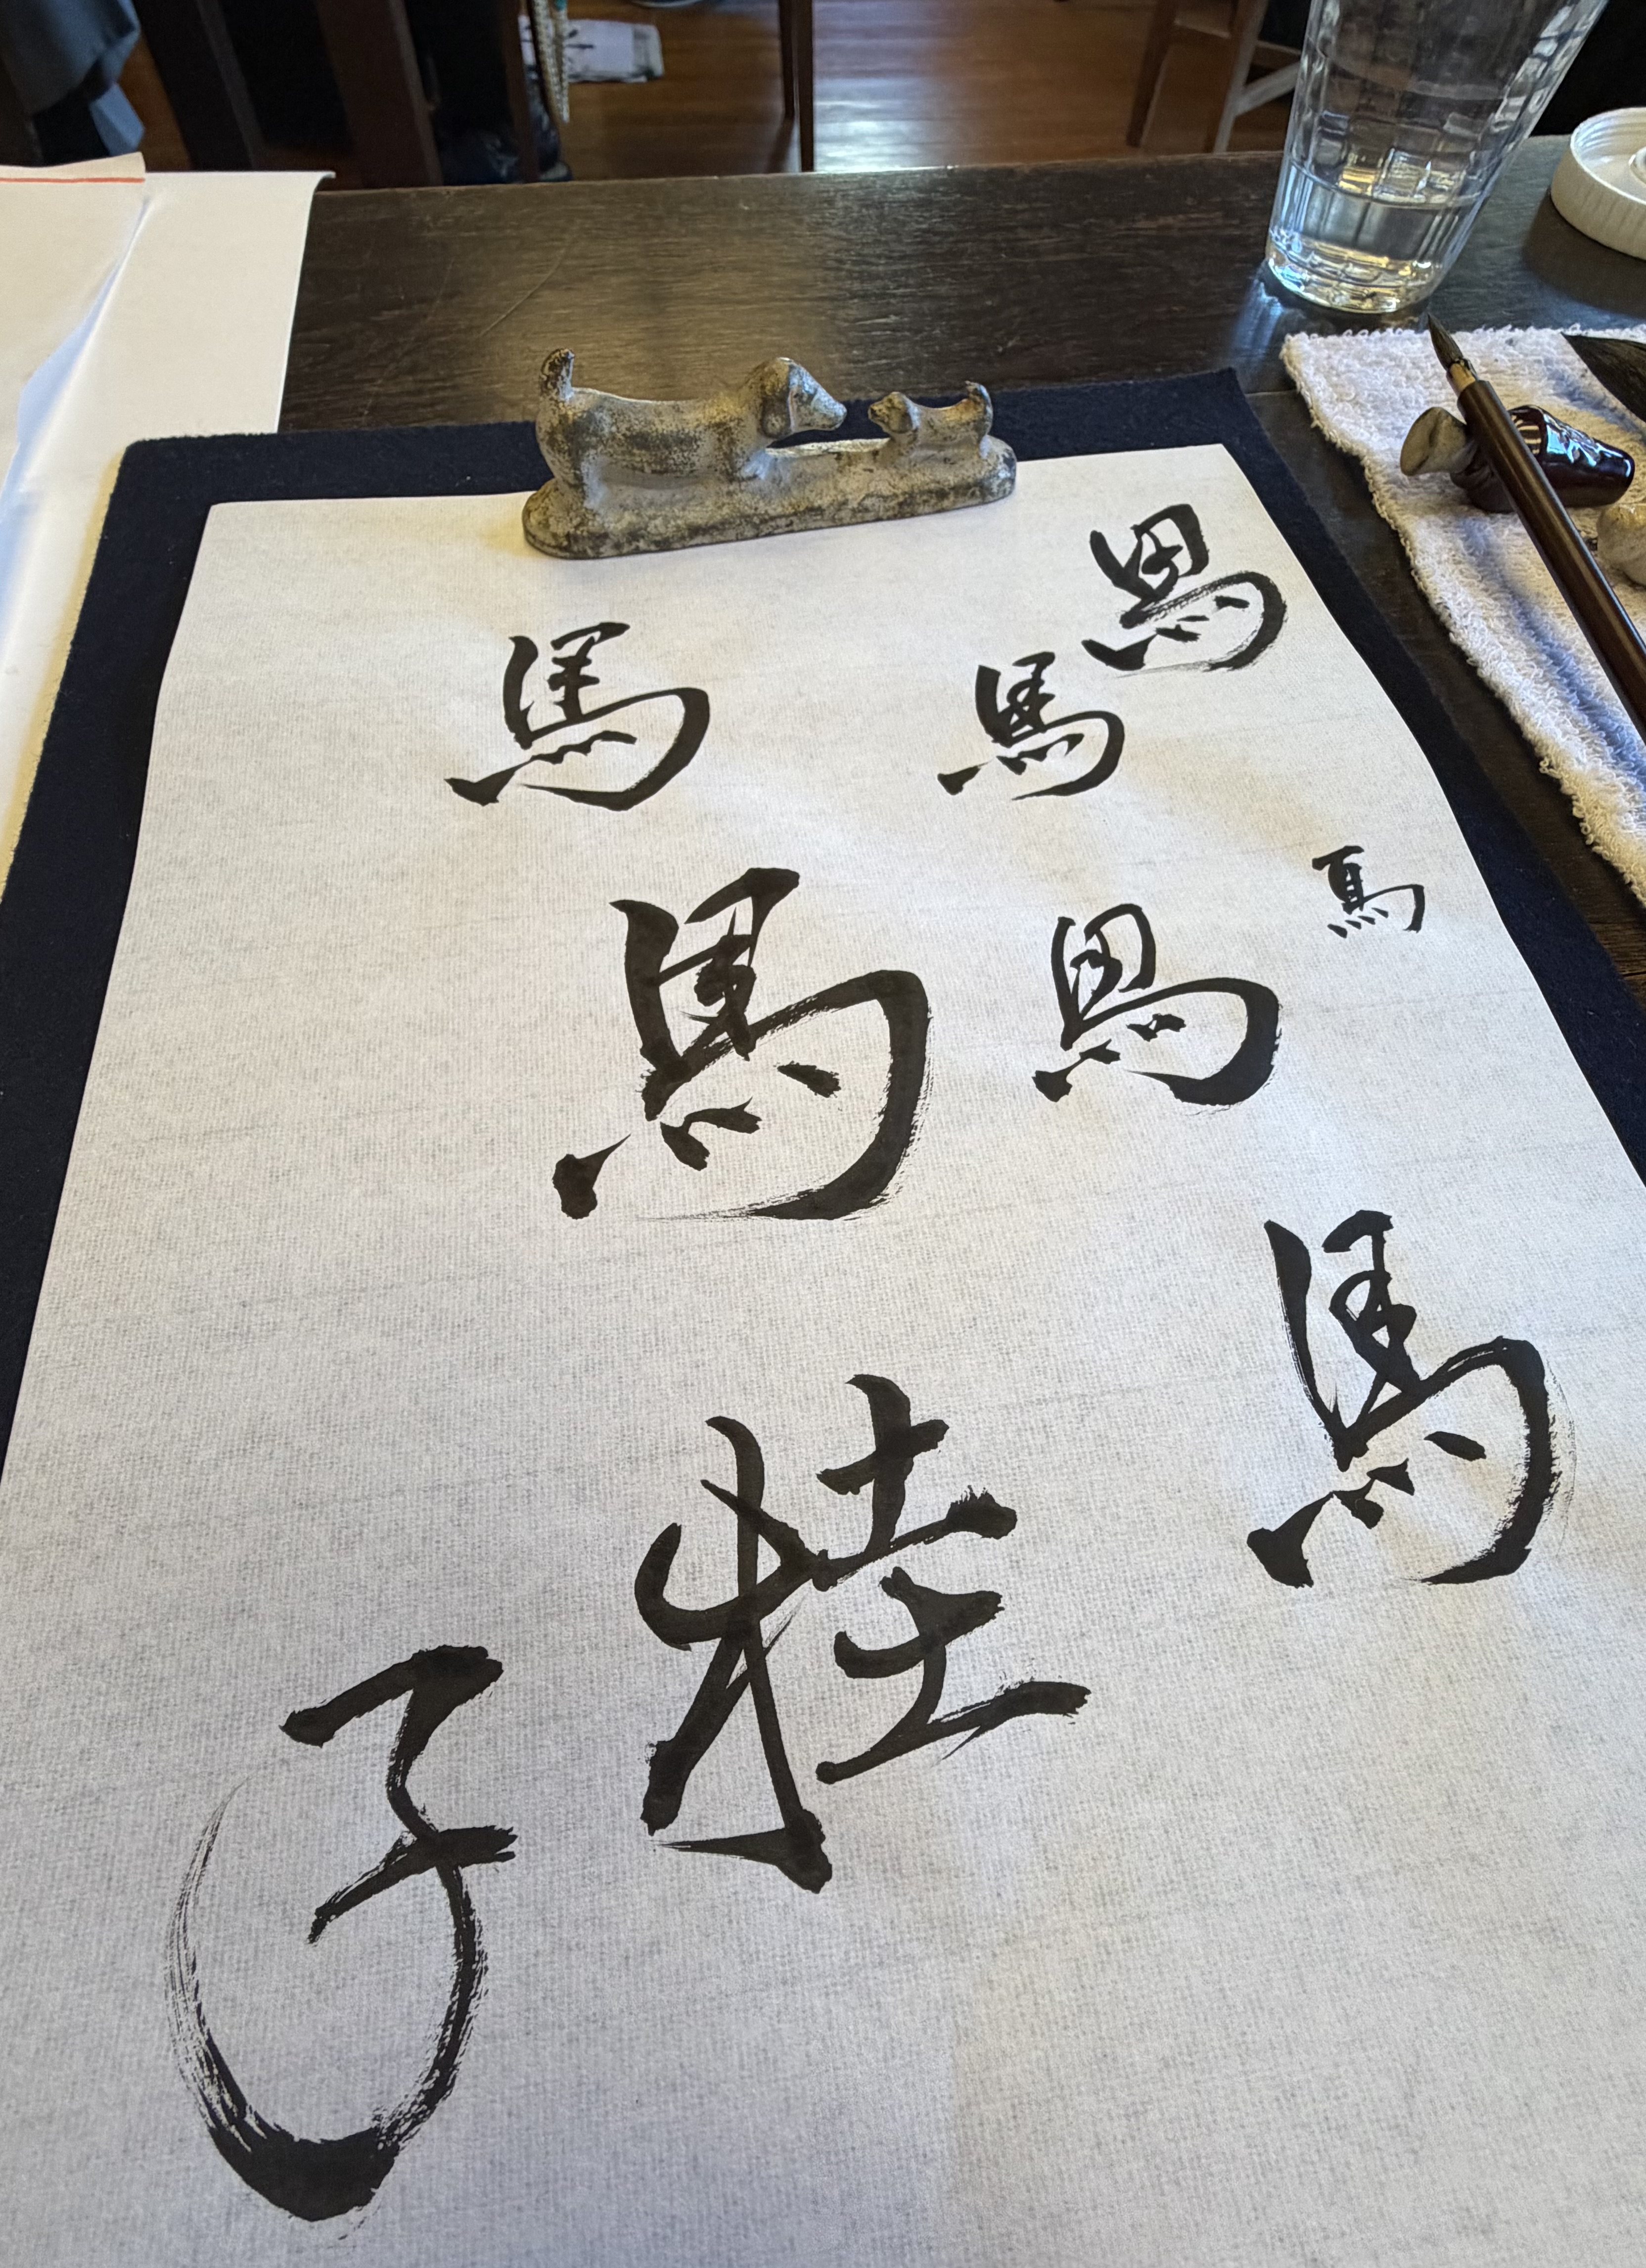 馬
馬
馬
馬
馬
馬
馬
桂
子